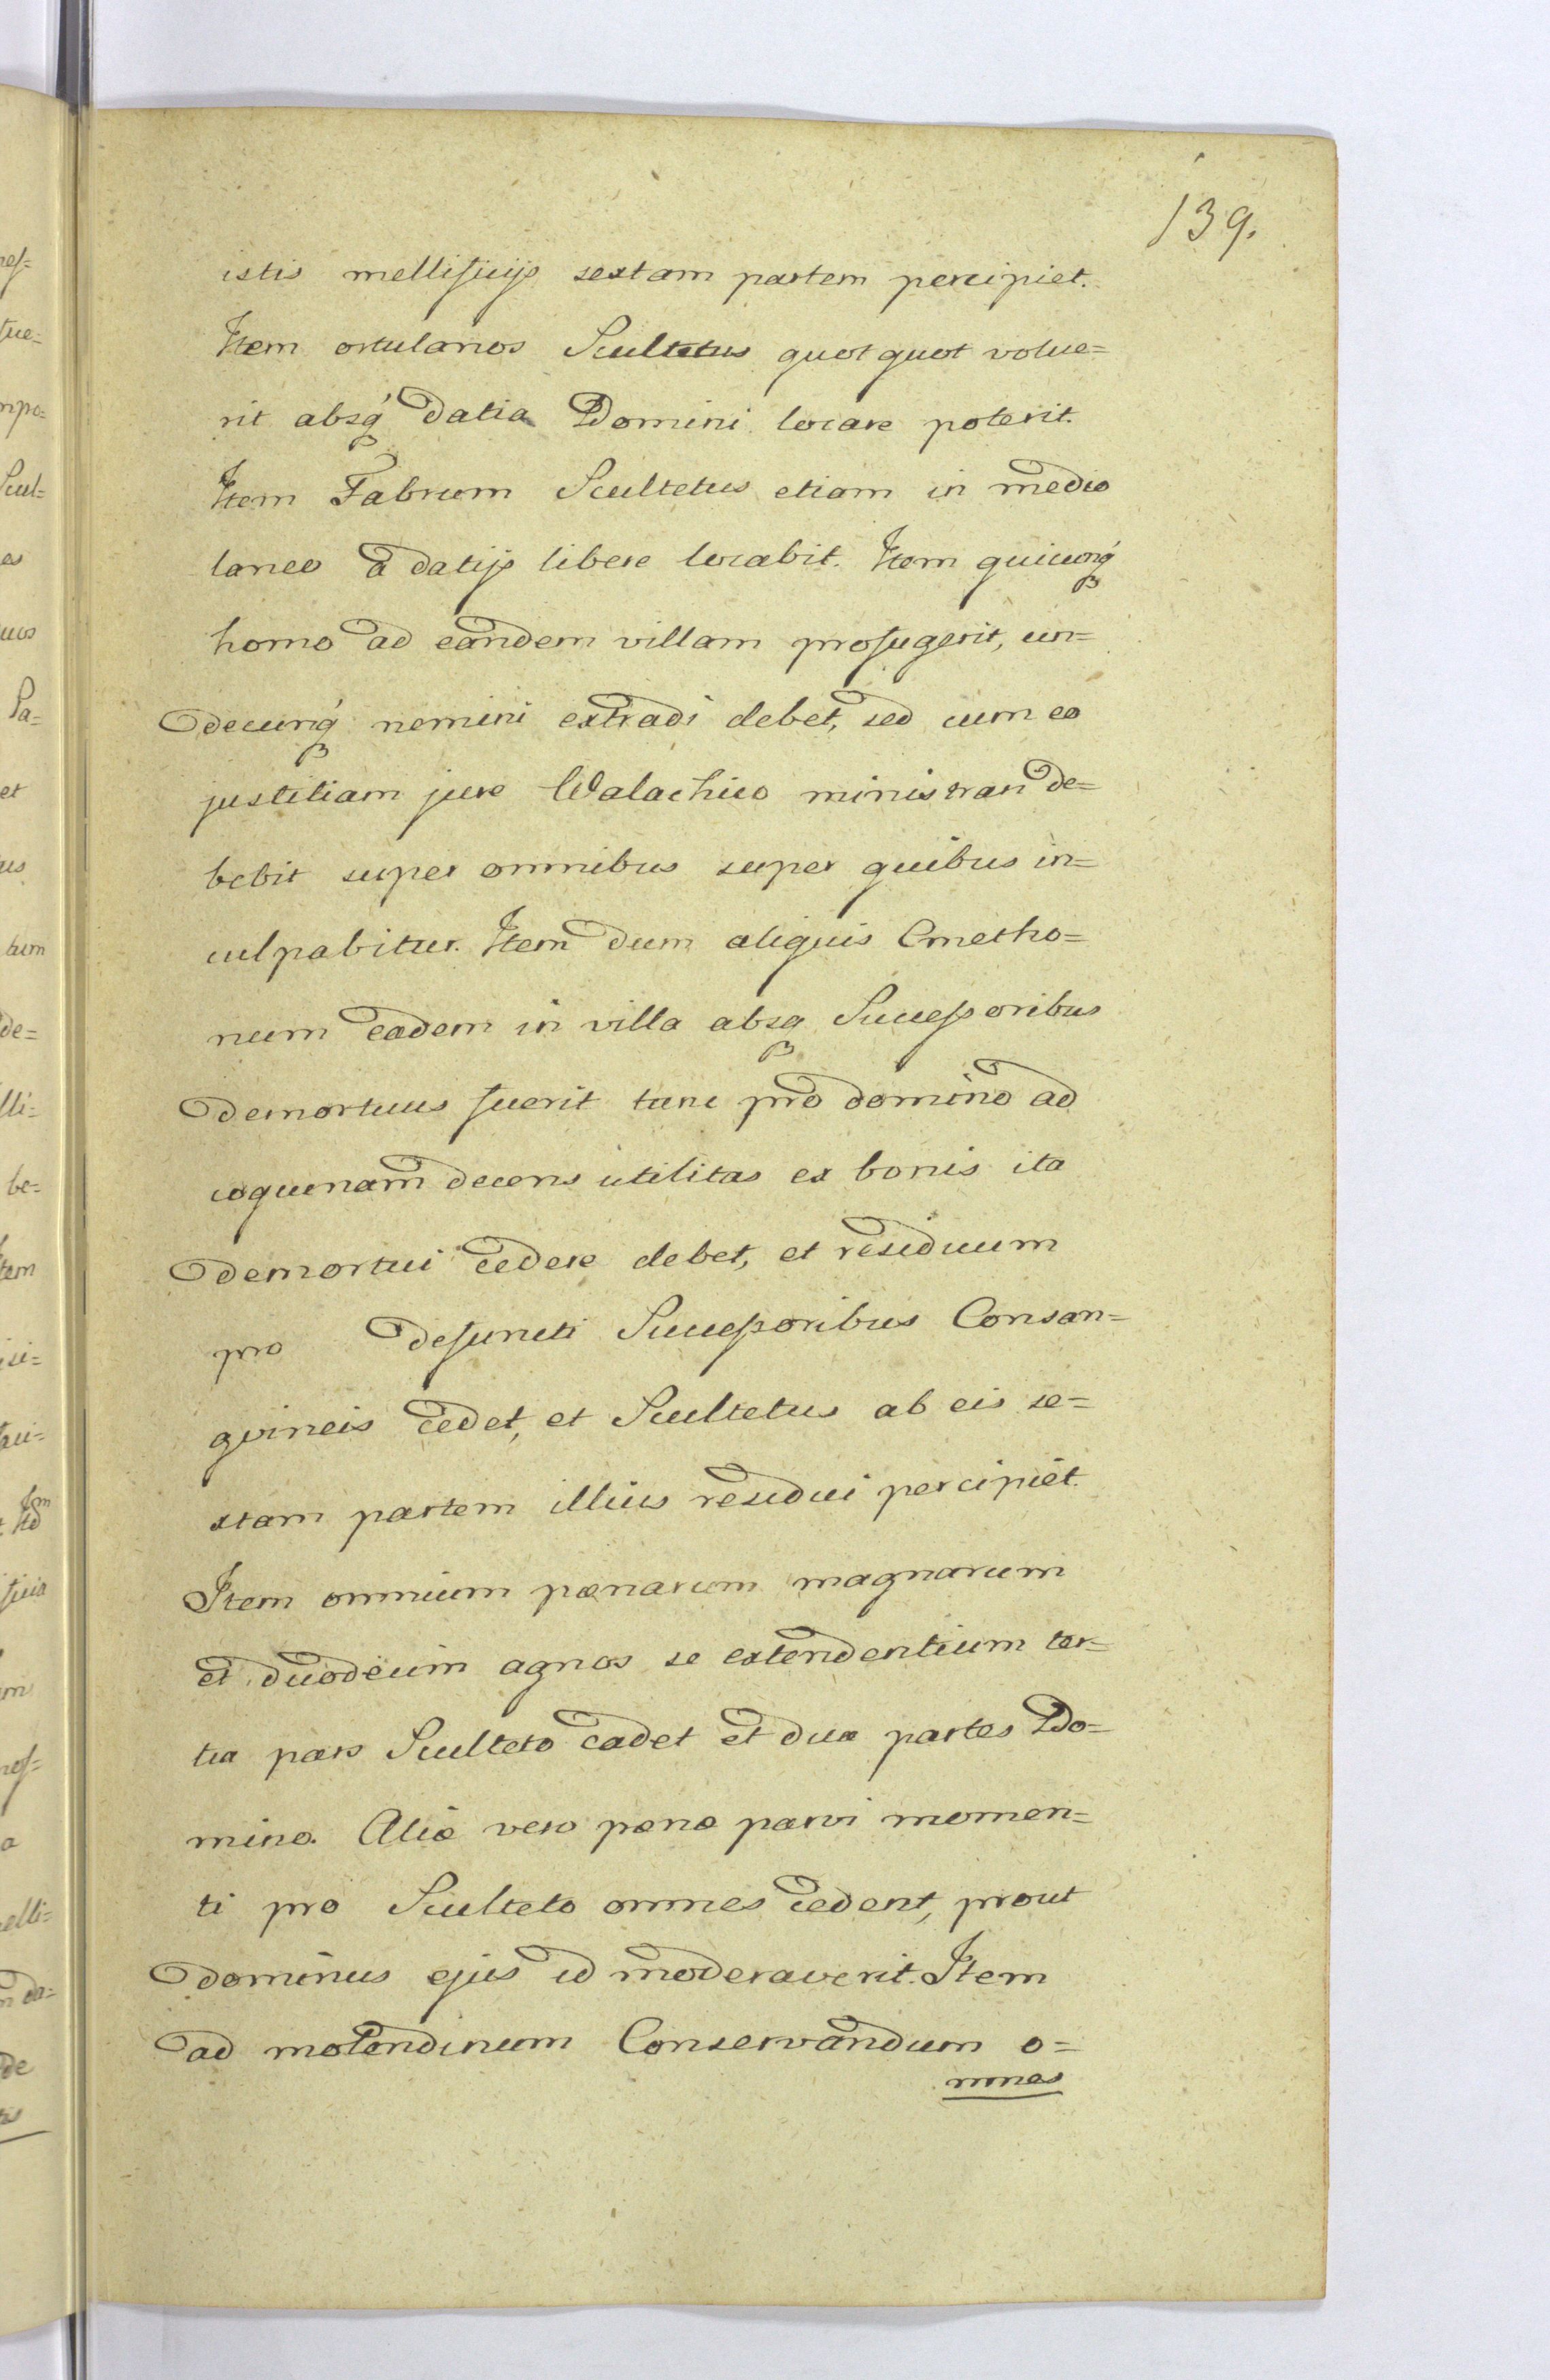 139.
istis mellificijs sextam partem percipiet.
Item ortulanos Scultetus quot quot volue=
rit absq́ datia Domini locare poterit.
Item Fabrum Scultetus etiam in medio
laneo a datijs libere locabit. Item quicunq́
homo ad eandem villam profugerit, un=
decunq́ nemini extradi debet, sed cum eo
justitiam jure Walachico ministrari de=
bebit super omnibus super quibus in=
culpabitur. Item dum aliquis Cmetho=
num eadem in villa absq Successoribus
demortuus fuerit tunc pro domino ad
coquenam decens utilitas ex bonis ita
demortui cedere debet, et residuum
pro defuncti Successoribus Consan=
guineis cedet, et Scultetus ab eis se=
xtam partem illius residui percipiet.
Item omnium pænarum magnarum
et duodecim agnos se extendentium ter=
tia pars Sculteto cadet et duæ partes Do=
mino. Aliæ vero pænæ parvi momen=
ti pro Sculteto omnes cedent, prout
dominus ejus id moderaverit. Item
ad molendinum Conservandum o=
mnes